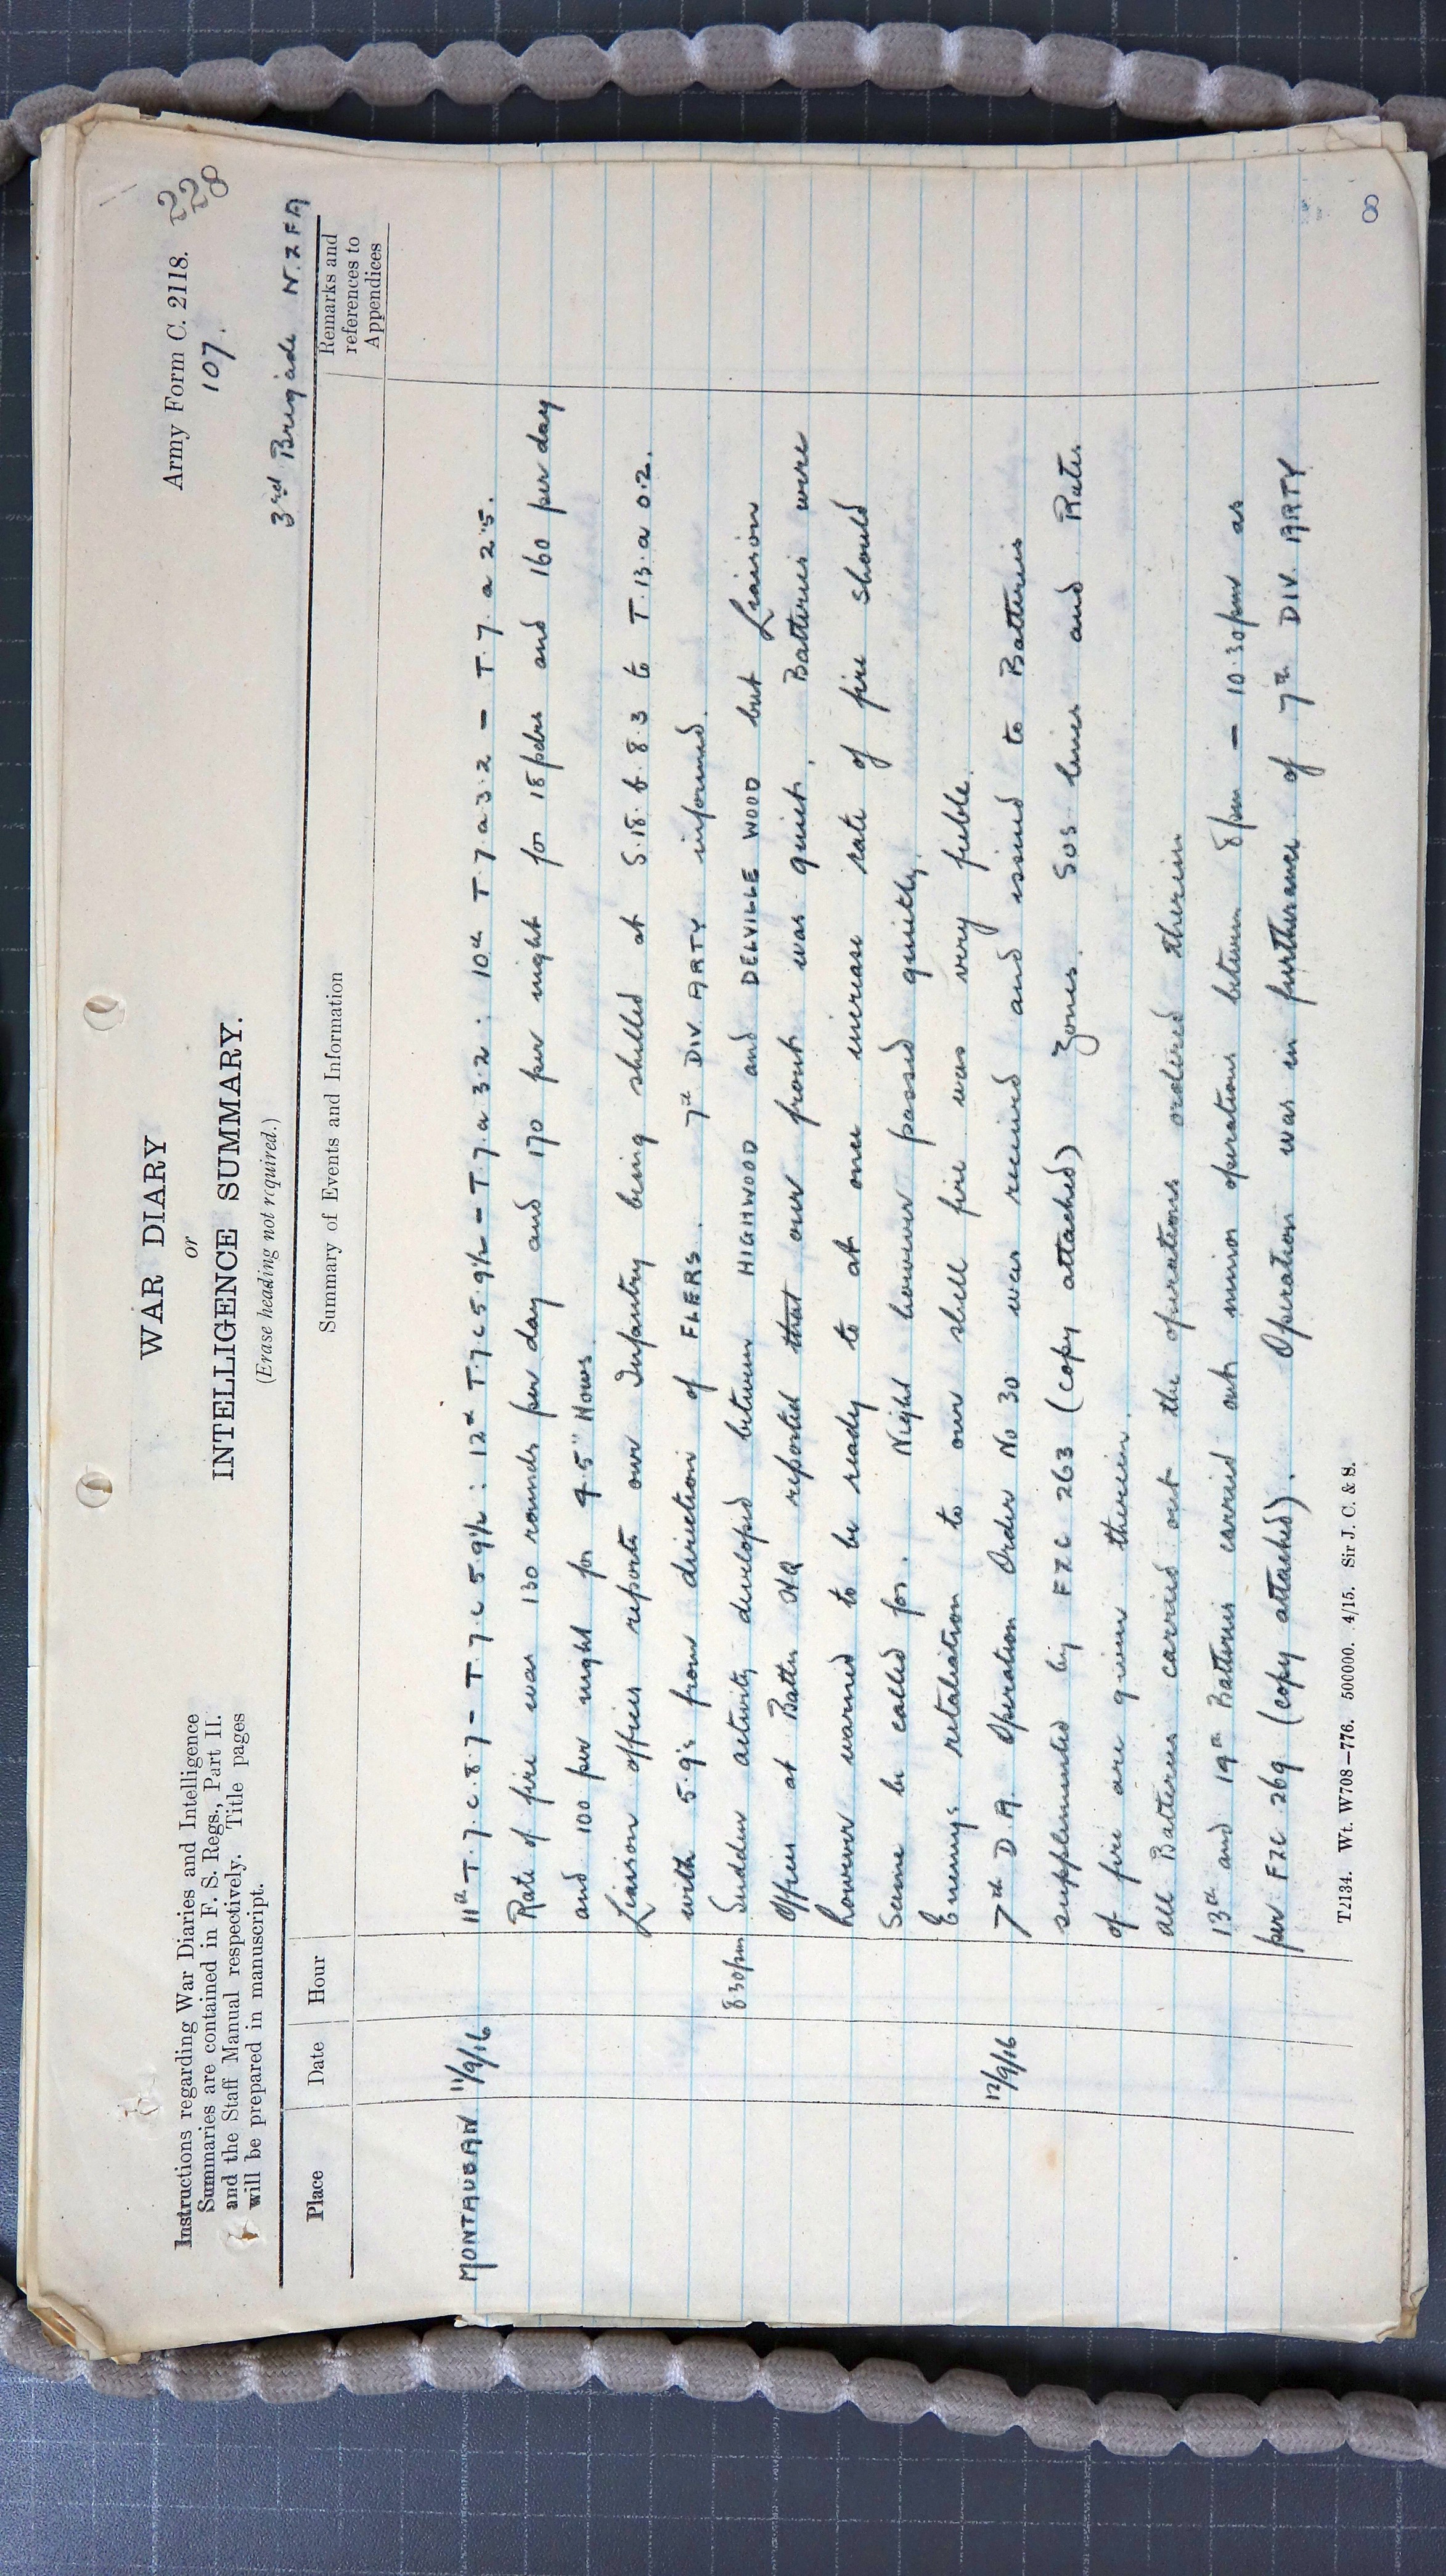 Army Form C. 2118.
228
107.
WAR DIARY
or
INTELLIGENCE SUMMARY.
(Erase heading not required.)
Instructions regarding War Diaries and Intelligence
Summaries are contained in F. S. Regs., Part II.
and the Staff Manual respectively. Title pages
will be prepared in manuscript.
3rd Brigade N.Z FA
Place
Date
Hour
Summary of Events and Information
Remarks and
references to
Appendices
MONTAUBAN 11/9/16 11th T.7.c.8.7 – T.7.c 5.9½ : 12th T.7.c 5.9½ – T.7.a 3.2 : 10th T.7.a 3.2 – T.7.a 2.5.
Rate of fire was 130 rounds per day and 170 per night for 18 pdrs and 160 per day
and 100 per night for 4.5" Hows.
Liaison officer reports our Infantry being shelled at S.18.b.8.3 to T.13.a 0.2.
with 5.9's from direction of FLERS. 7th DIV ARTY informed.
8 30pm Sudden activity developed between HIGHWOOD and DELVILLE WOOD but Liaison
Officer at Battn HQ reported that our front was quiet. Batteries were
however warned to be ready to at once increase rate of fire should
same be called for. Night however passed quietly.
Enemys retaliation to our shell fire was very feeble.
12/9/16 7th D.A. Operation Order No 30 was received and issued to Batteries
supplemented by FZC 263 (copy attached) Zones. SOS lines and Rates
of fire are given therein.
all Batteries carried out the operations ordered therein
13th and 19th Batteries carried out minor operation between 8pm – 10.30pm as
per FZC 269 (copy attached). Operation was in furtherance of 7th DIV. ARTY
T2134. Wt. W708–776. 500000. 4/15. Sir J. C. & S.
8